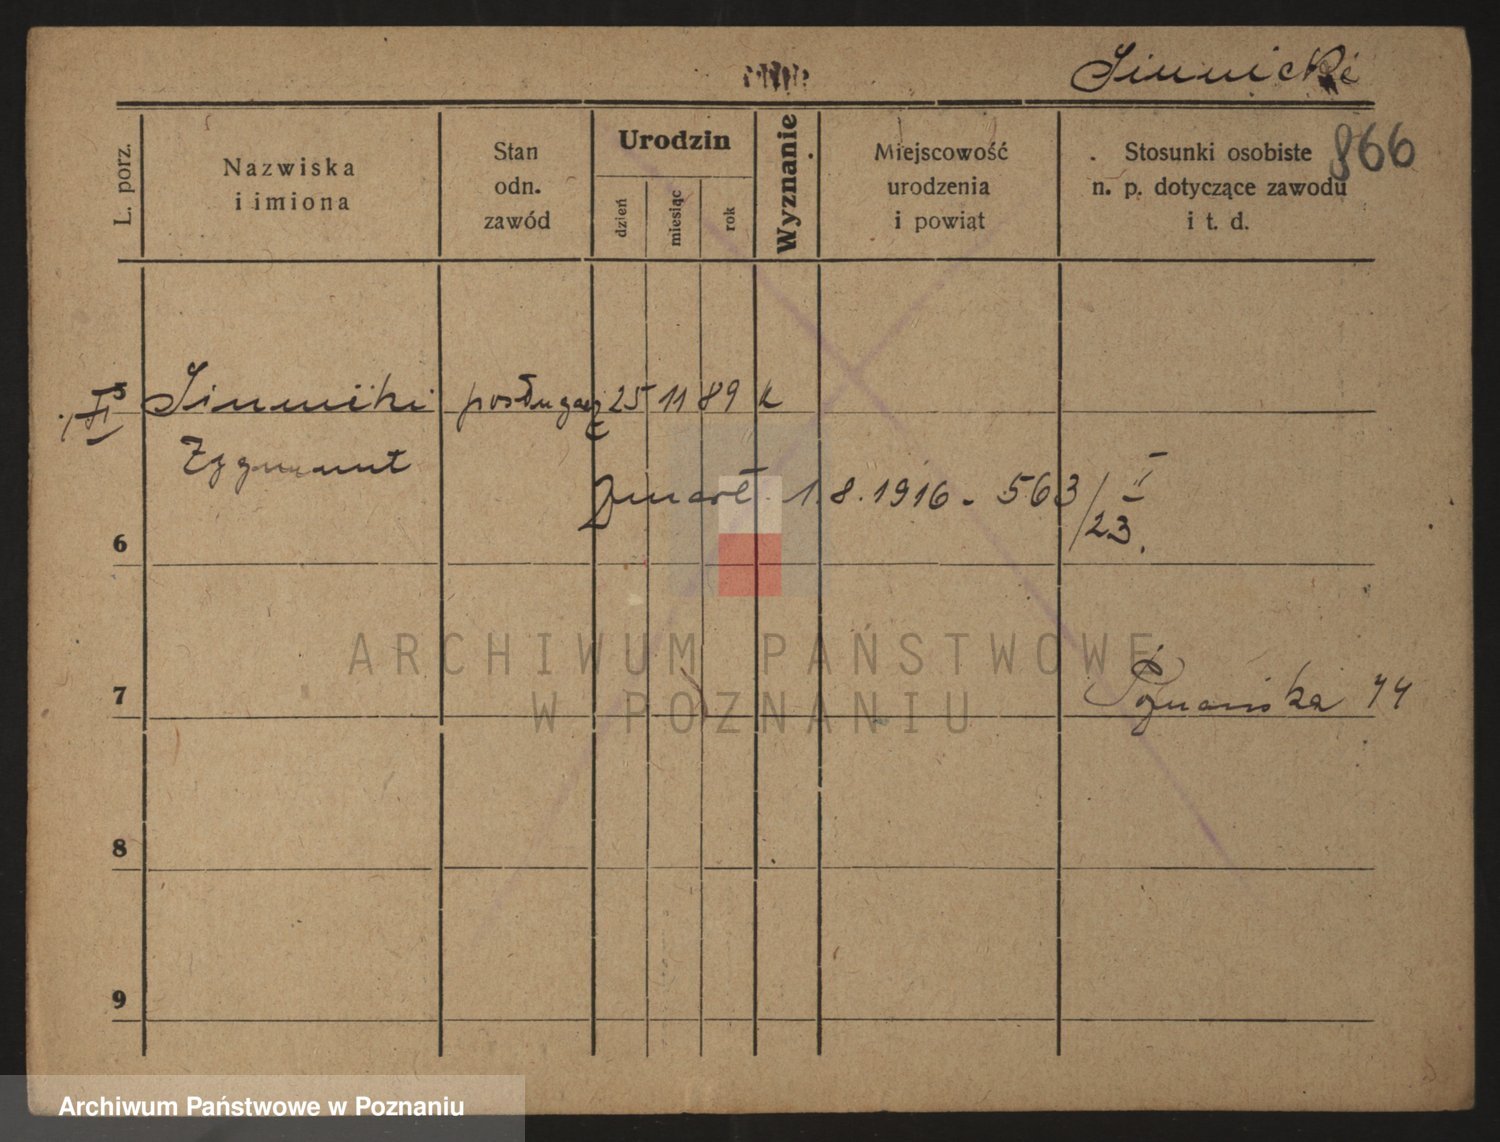 Sinnicki
866
L. porz.
Nazwiska
i imiona
Stan
odn.
zawód
Urodzin
dzień
miesiąc
rok
Wyznanie
Miejscowość
urodzenia
i powiat
Stosunki osobiste
n. p. dotyczące zawodu
i t. d.
posługacz 25 11 89 k
Zygmunt
Zmarł 1.8.1916 - 563/II
23.
6
7
Poznańska 44
8
9
ARCHIWUM PAŃSTWOWE
W POZNANIU
Archiwum Państwowe w Poznaniu